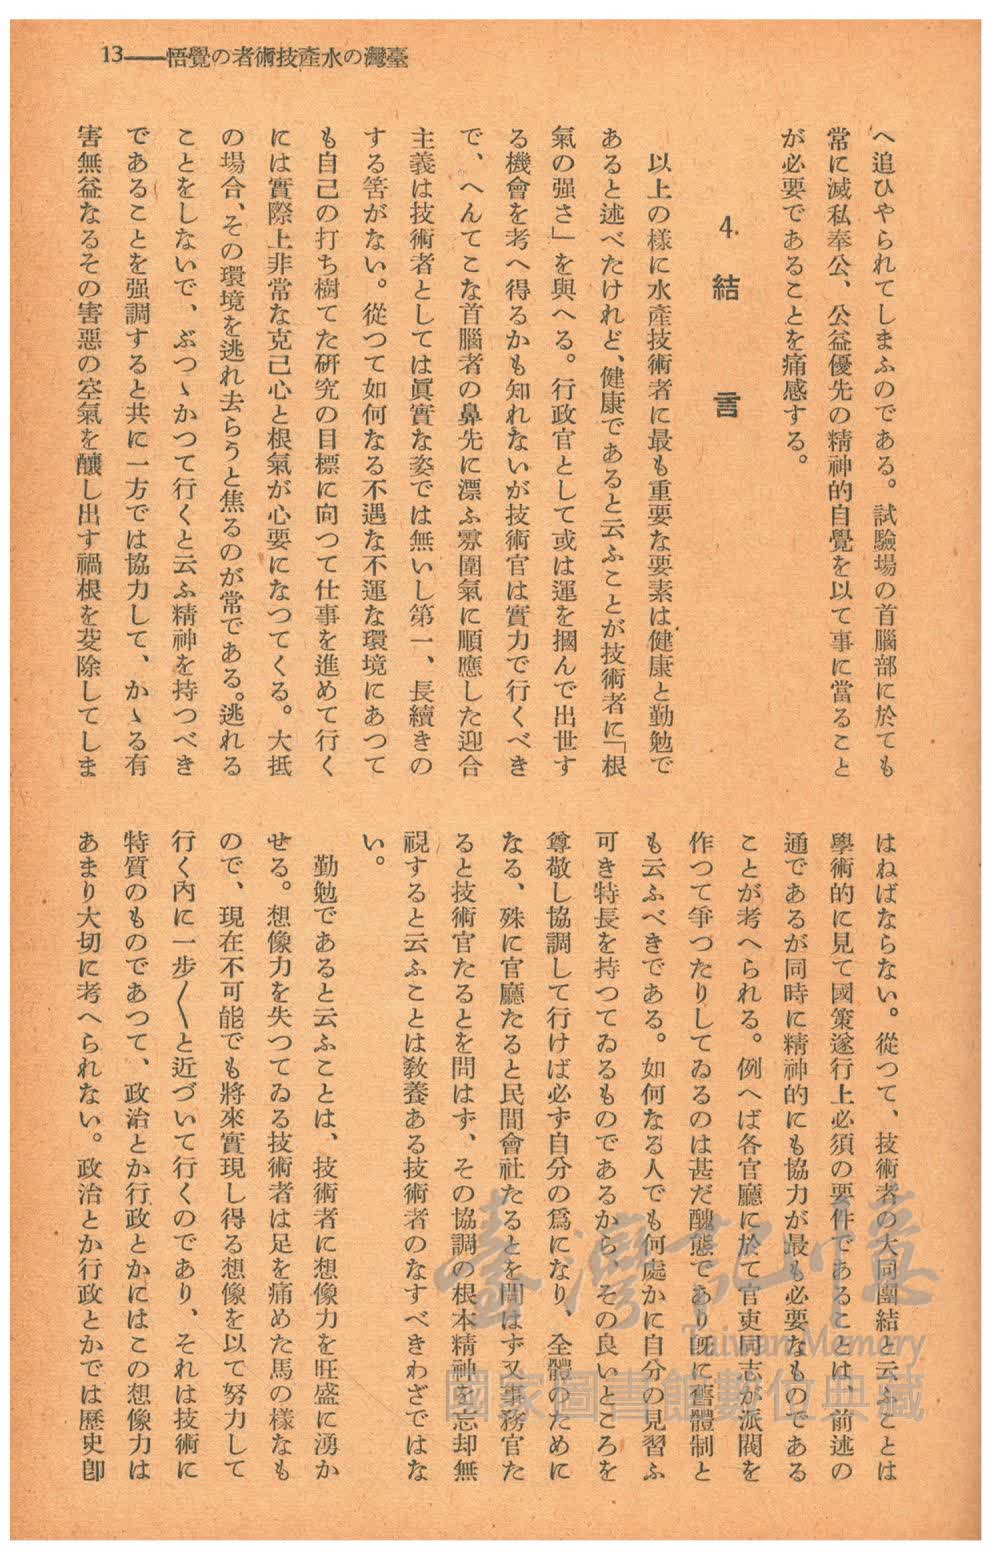 臺灣の水產技術者の覺悟——13
へ追ひやられてしまふのである。試驗場の首腦部に於ても
常に滅私奉公、公益優先の精神的自覺を以て事に當ること
が必要であることを痛感する。
4. 結言
以上の樣に水產技術者に最も重要な要素は健康と勤勉で
あると述べたけれど、健康であると云ふことが技術者に「根
氣の强さ」を與へる。行政官として或は運を摑んで出世す
る機會を考へ得るかも知れないが技術官は實力で行くべき
で、へんてこな首腦者の鼻先に漂ふ雰圍氣に順應した迎合
主義は技術者としては眞實な姿では無いし第一、長續きの
する筈がない。從つて如何なる不遇な不運な環境にあつて
も自己の打ち樹てた硏究の目標に向つて仕事を進めて行く
には實際上非常な克己心と根氣が心要になつてくる。大抵
の場合、その環境を逃れ去らうと焦るのが常である。逃れる
ことをしないで、ぶつゝかつて行くと云ふ精神を持つべき
であることを强調すると共に一方では協力して、かゝる有
害無益なるその害惡の空氣を釀し出す禍根を芟除してしま
はねばならない。從つて、技術者の大同團結と云ふことは
學術的に見て國策遂行上必須の要件であることは、前述の
通であるが同時に精神的にも協力が最も必要なものである
ことが考へられる。例へば各官廳に於て官吏同志が派閥を
作つて爭つたりしてゐるのは甚だ醜態であり旣に舊體制と
も云ふべきである。如何なる人でも何處かに自分の見習ふ
可き特長を持つてゐるものであるから、その良いところを
尊敬し協調して行けば必ず自分の爲になり、全體のために
なる、殊に官廳たると民間會社たるとを問はず又事務官た
ると技術官たるとを問はず、その協調の根本精神を忘却無
視すると云ふことは敎養ある技術者のなすべきわざではな
い。
勤勉であると云ふことは、技術者に想像力を旺盛に湧か
せる。想像力を失つてゐる技術者は足を痛めた馬の樣なも
ので、現在不可能でも將來實現し得る想像を以て努力して
行く內に一步〱と近づいて行くのであり、それは技術に
特質のものであつて、政治とか行政とかにはこの想像力は
あまり大切に考へられない。政治とか行政とかでは歷史卽
臺灣記憶
Taiwan Memory
國家圖書館數位典藏